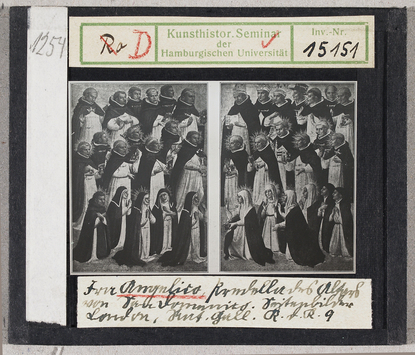 1254
Ro D
Kunsthistor. Seminar
der
Hamburgischen Universität
Inv.-Nr.
15151
Fra Angelico, Predella des Altars
von San Domenico. Seitenbilder
London, Nat. Gall. K. d. K. 9